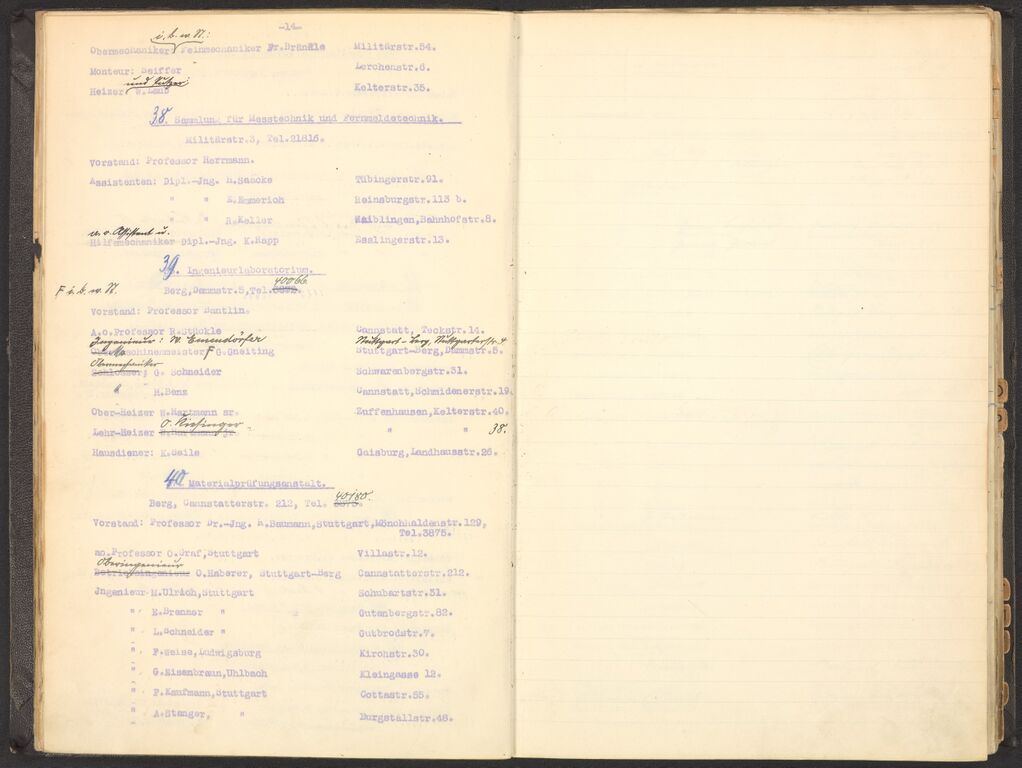 -14-
i.b.w.N:
Obermechaniker Feinmechaniker Fr.Brändle Militärstr.54.
Monteur: Seiffer Lerchenstr.6.
und Putzer:
Heizer W. Lauß Kelterstr.35.
38. Sammlung für Messtechnik und Fernmeldetechnik.
Militärstr.3, Tel.21816.
Vorstand: Professor Herrmann.
Assistenten: Dipl.-Jng. H.Sancke Tübingerstr.91.
" " E.Emmerich Reinsburgstr.113 b.
" " R.Keller Waiblingen,Bahnhofstr.8.
a.o. Assistent u.
Hilfsmechaniker Dipl.-Jng. K.Rapp Esslingerstr.13.
39. Ingenieurlaboratorium.
40066
F i.b.w.N.
Berg,Dammstr.5,Tel.
Vorstand: Professor Bantlin.
A.o.Professor R.Stückle Cannstatt, Teckstr.14.
Ingenieur: W. Emendörfer Stuttgart-Berg, Stuttgarterstr. 4
Obermaschinenmeister F G.Gneiting Stuttgart-Berg,Dammstr.5.
Obermechaniker
Schlosser; G. Schneider Schwarenbergstr.31.
" H.Benz Cannstatt,Schmidenerstr.19.
Ober-Heizer W.Hartmann sr. Zuffenhausen,Kelterstr.40.
O. Kiesinger
Lehr-Heizer W.Hartmann jr. " " 38.
Hausdiener: K.Seile Gaisburg,Landhausstr.26.
40 Materialprüfungsanstalt.
40180.
Berg, Cannstatterstr. 212, Tel. 3875.
Vorstand: Professor Dr.-Jng. R.Baumann,Stuttgart,Mönchhaldenstr.129,
Tel.3875.
ao.Professor O.Graf,Stuttgart Villastr.12.
Oberingenieur
Betriebsingenieur O.Haberer, Stuttgart-Berg Cannstatterstr.212.
Jngenieur M.Ulrich,Stuttgart Schubartstr.31.
" E.Brenner " Gutenbergstr.82.
" L.Schneider " Gutbrodstr.7.
" F.Weise,Ludwigsburg Kirchstr.30.
" G.Eisenbraun,Uhlbach Kleingasse 12.
" F.Kaufmann,Stuttgart Cottastr.55.
" A.Stanger, " Burgstallstr.48.